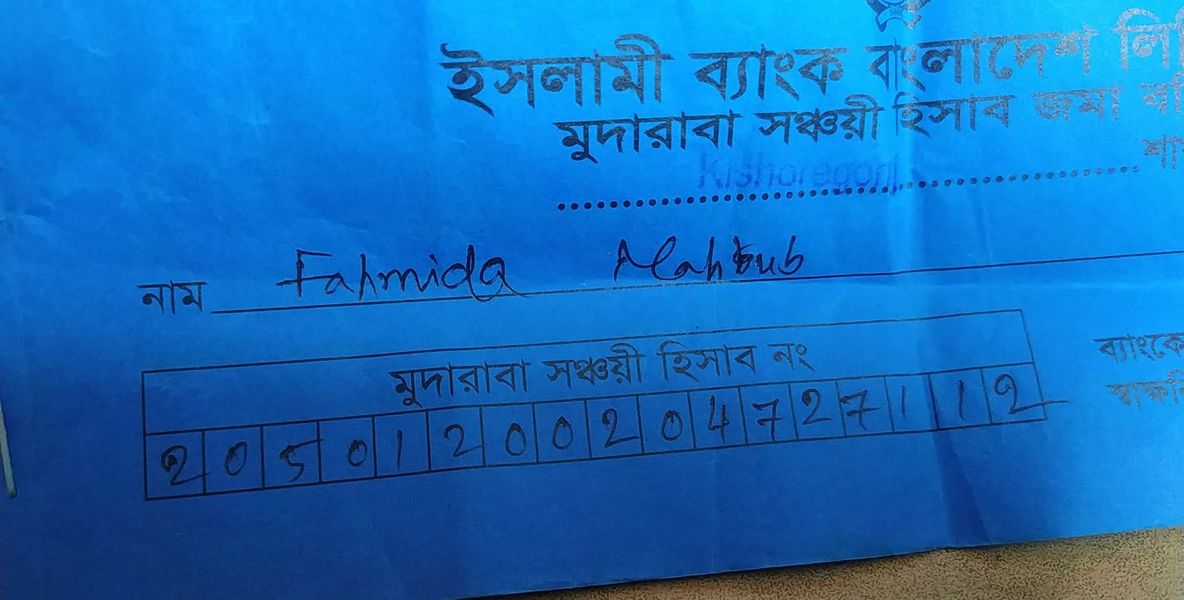 ইসলামী ব্যাংক বাংলাদেশ লি
মুদারাবা সঞ্চয়ী হিসাব জমা বই
Kishoregonj
নাম Fahmida Mahbub
মুদারাবা সঞ্চয়ী হিসাব নং
2 0 5 0 1 2 0 0 2 0 4 7 2 7 1 1 2